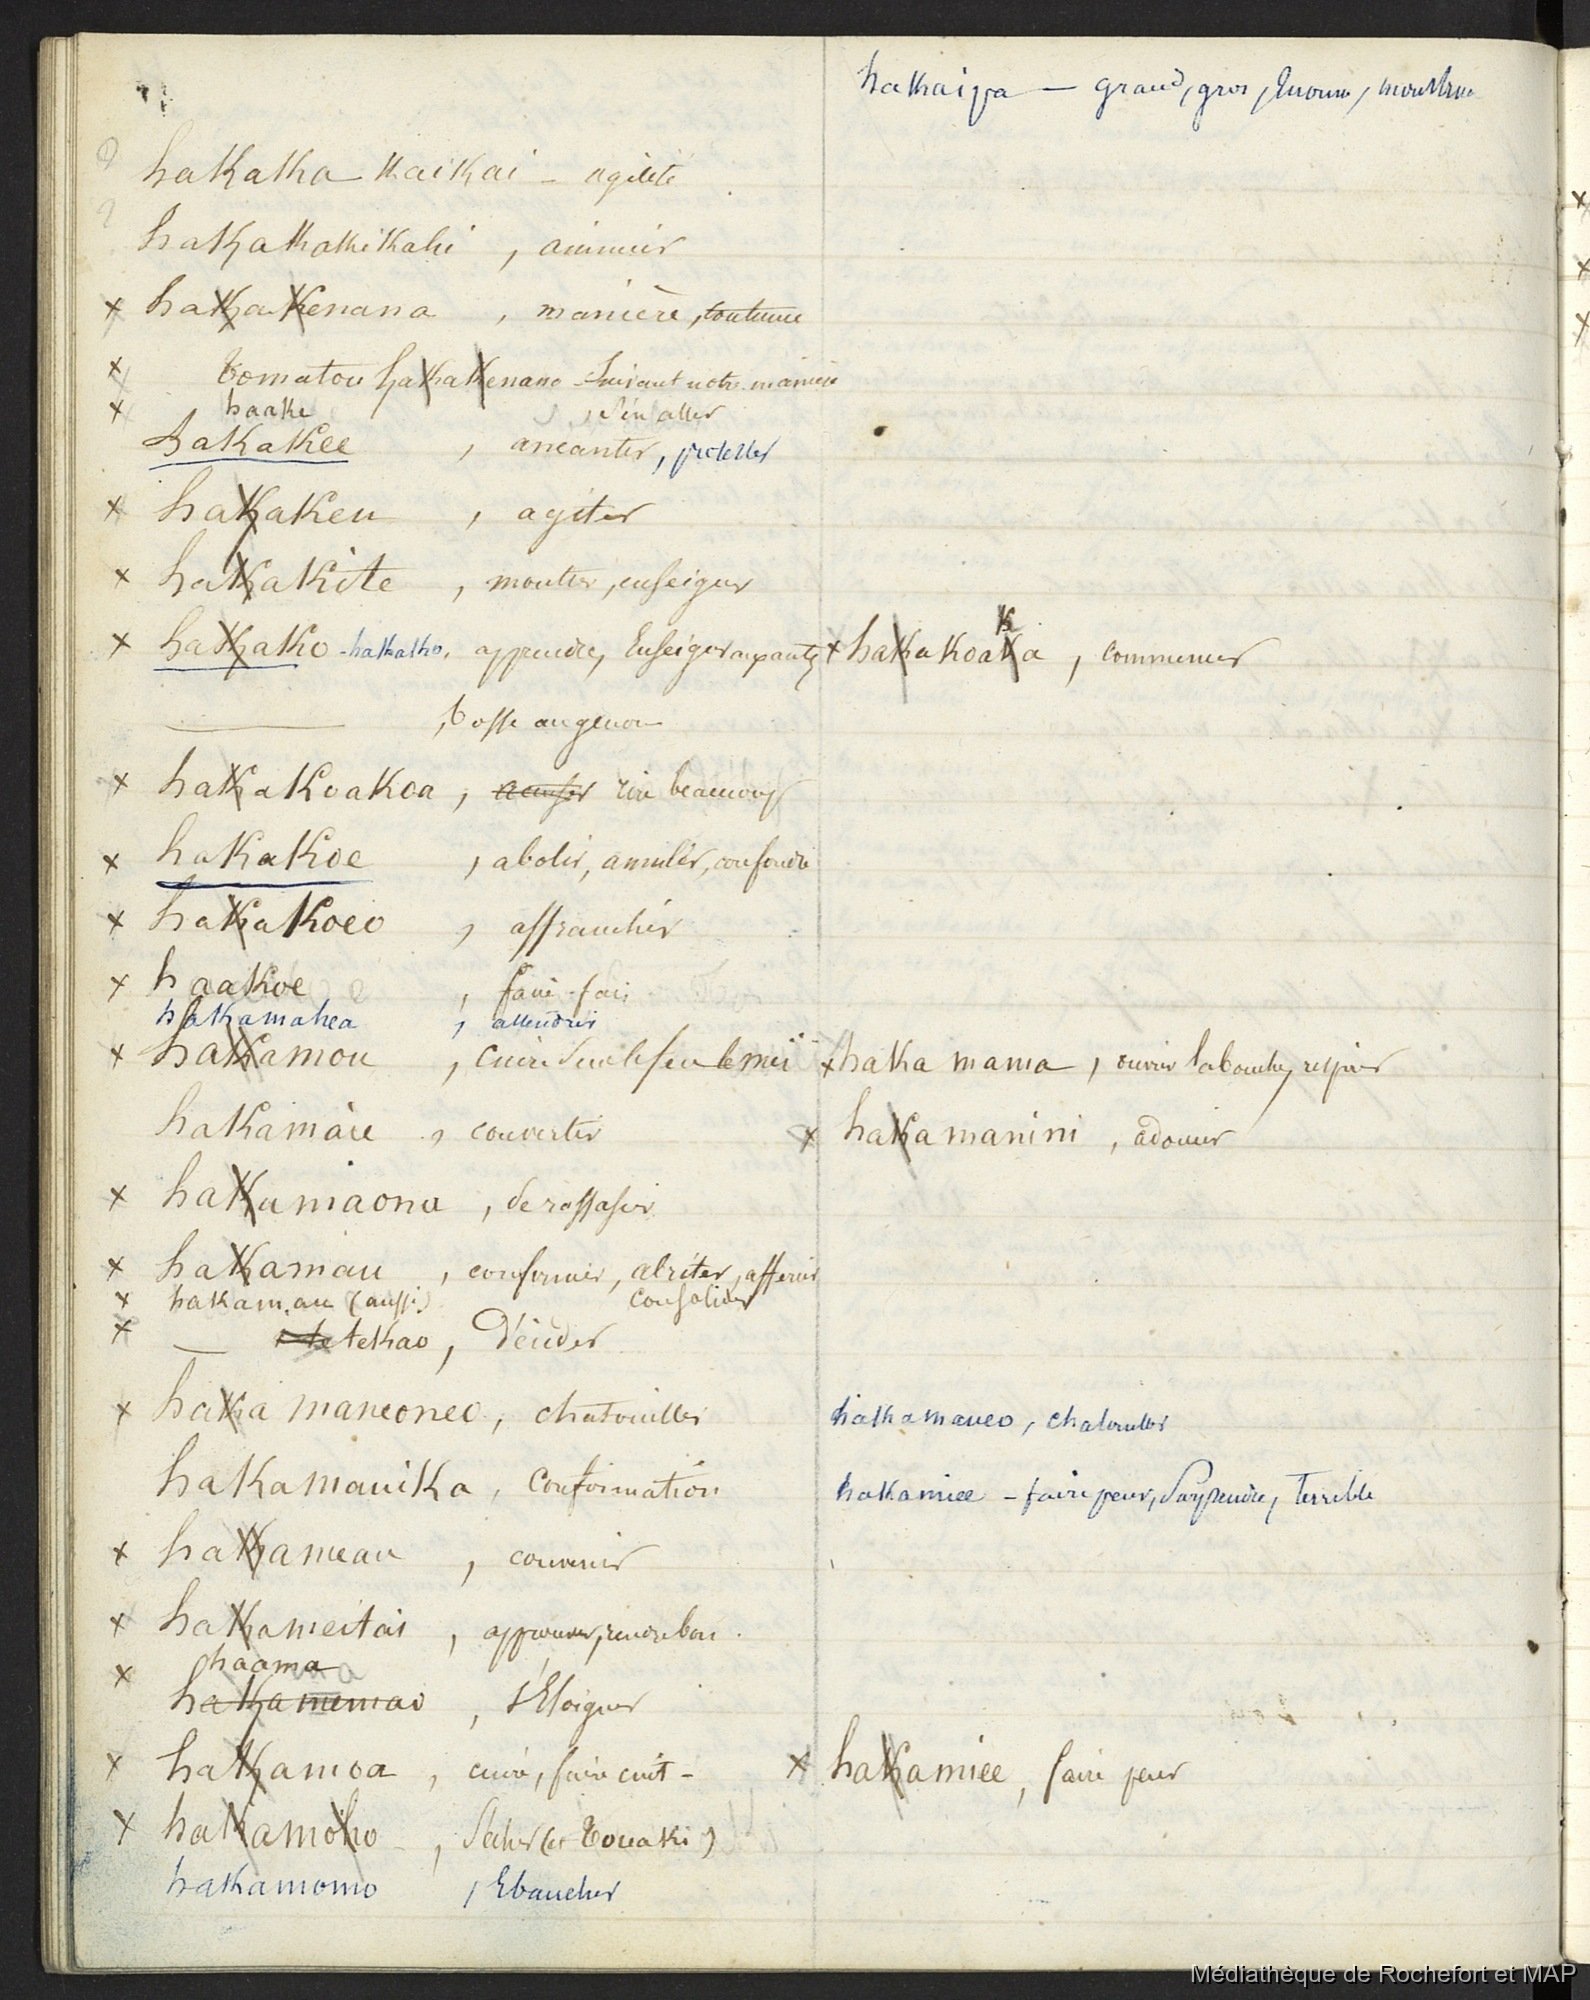 hakaipa — grand, gros, énorme, monstrue
hakaka kaikai - agilité
hakakakikahi, aminuir
x hakakenana, manière, coutume
x tomatou hakakenana - suivant notre manière
x haake, s'en aller
hakakee, aneantir, protester
x hakakeu, agiter
x hakakite, montrer, enseigner
x hakako - hakako, apprendre, Enseigner
x hakakoaka, commencer
k
———, bosse au genou
x hakakoakoa, rire beaucoup
x hakakoe, abolir, annuler, confondre
x hakakoeo, affranchir
x haakoe, faire - fair
hakamahea, attendrir
x hakamou, cuire sur le feu le mei
x haka mama, ouvrir la bouche, respirer
hakamaïe, convertir
x hakamanini, adoucir
x hakamaona, se rassasier
x hakamau, confirmer, abriter, affermir
x hakamau (aussi) consolider
x — tekao, d'éluder
x haka maneoneo, chatouiller
hakamaneo, chatouiller
hakamauika, Conformation
hakamiee - faire peur, surprendre, terrible
x hakameau, convenir
x hakameitai, approuver, rendre bon.
x haama
hakamemao, s'Eloigner
x hakamoa, cuire, faire cuit -
x hakamiee, faire peur
x hakamoho, Secher (et Touaki)
hakamomo, Ebaucher
Médiathèque de Rochefort et MAP